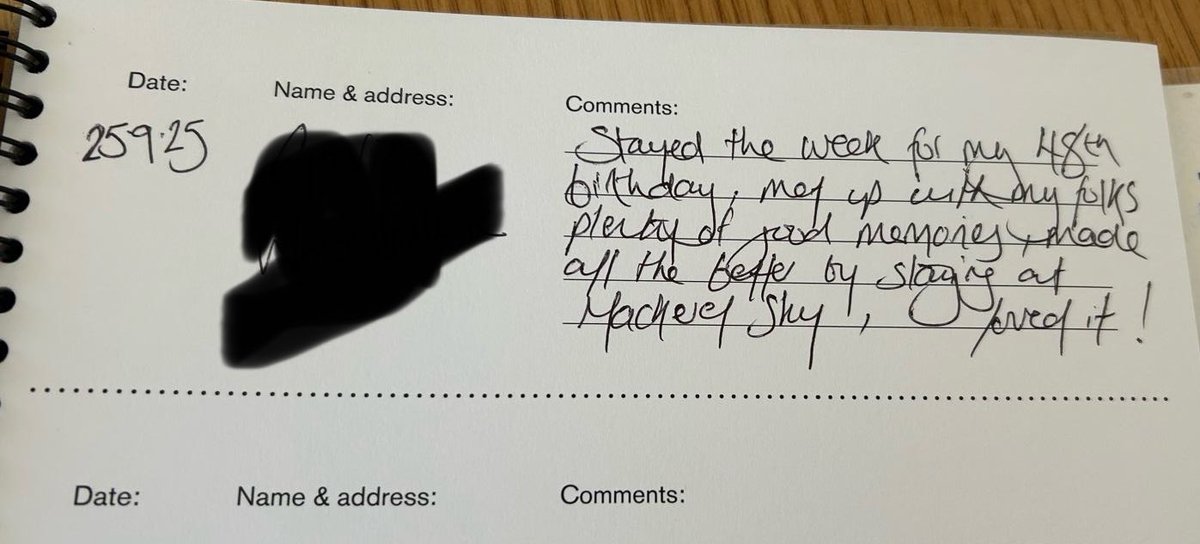 Date: Name & address: Comments:
25·9·25
Stayed the week for my 48th
birthday, met up with my folks
plenty of good memories, made
all the better by staying at
Mackerel Sky', loved it!
Date: Name & address: Comments: